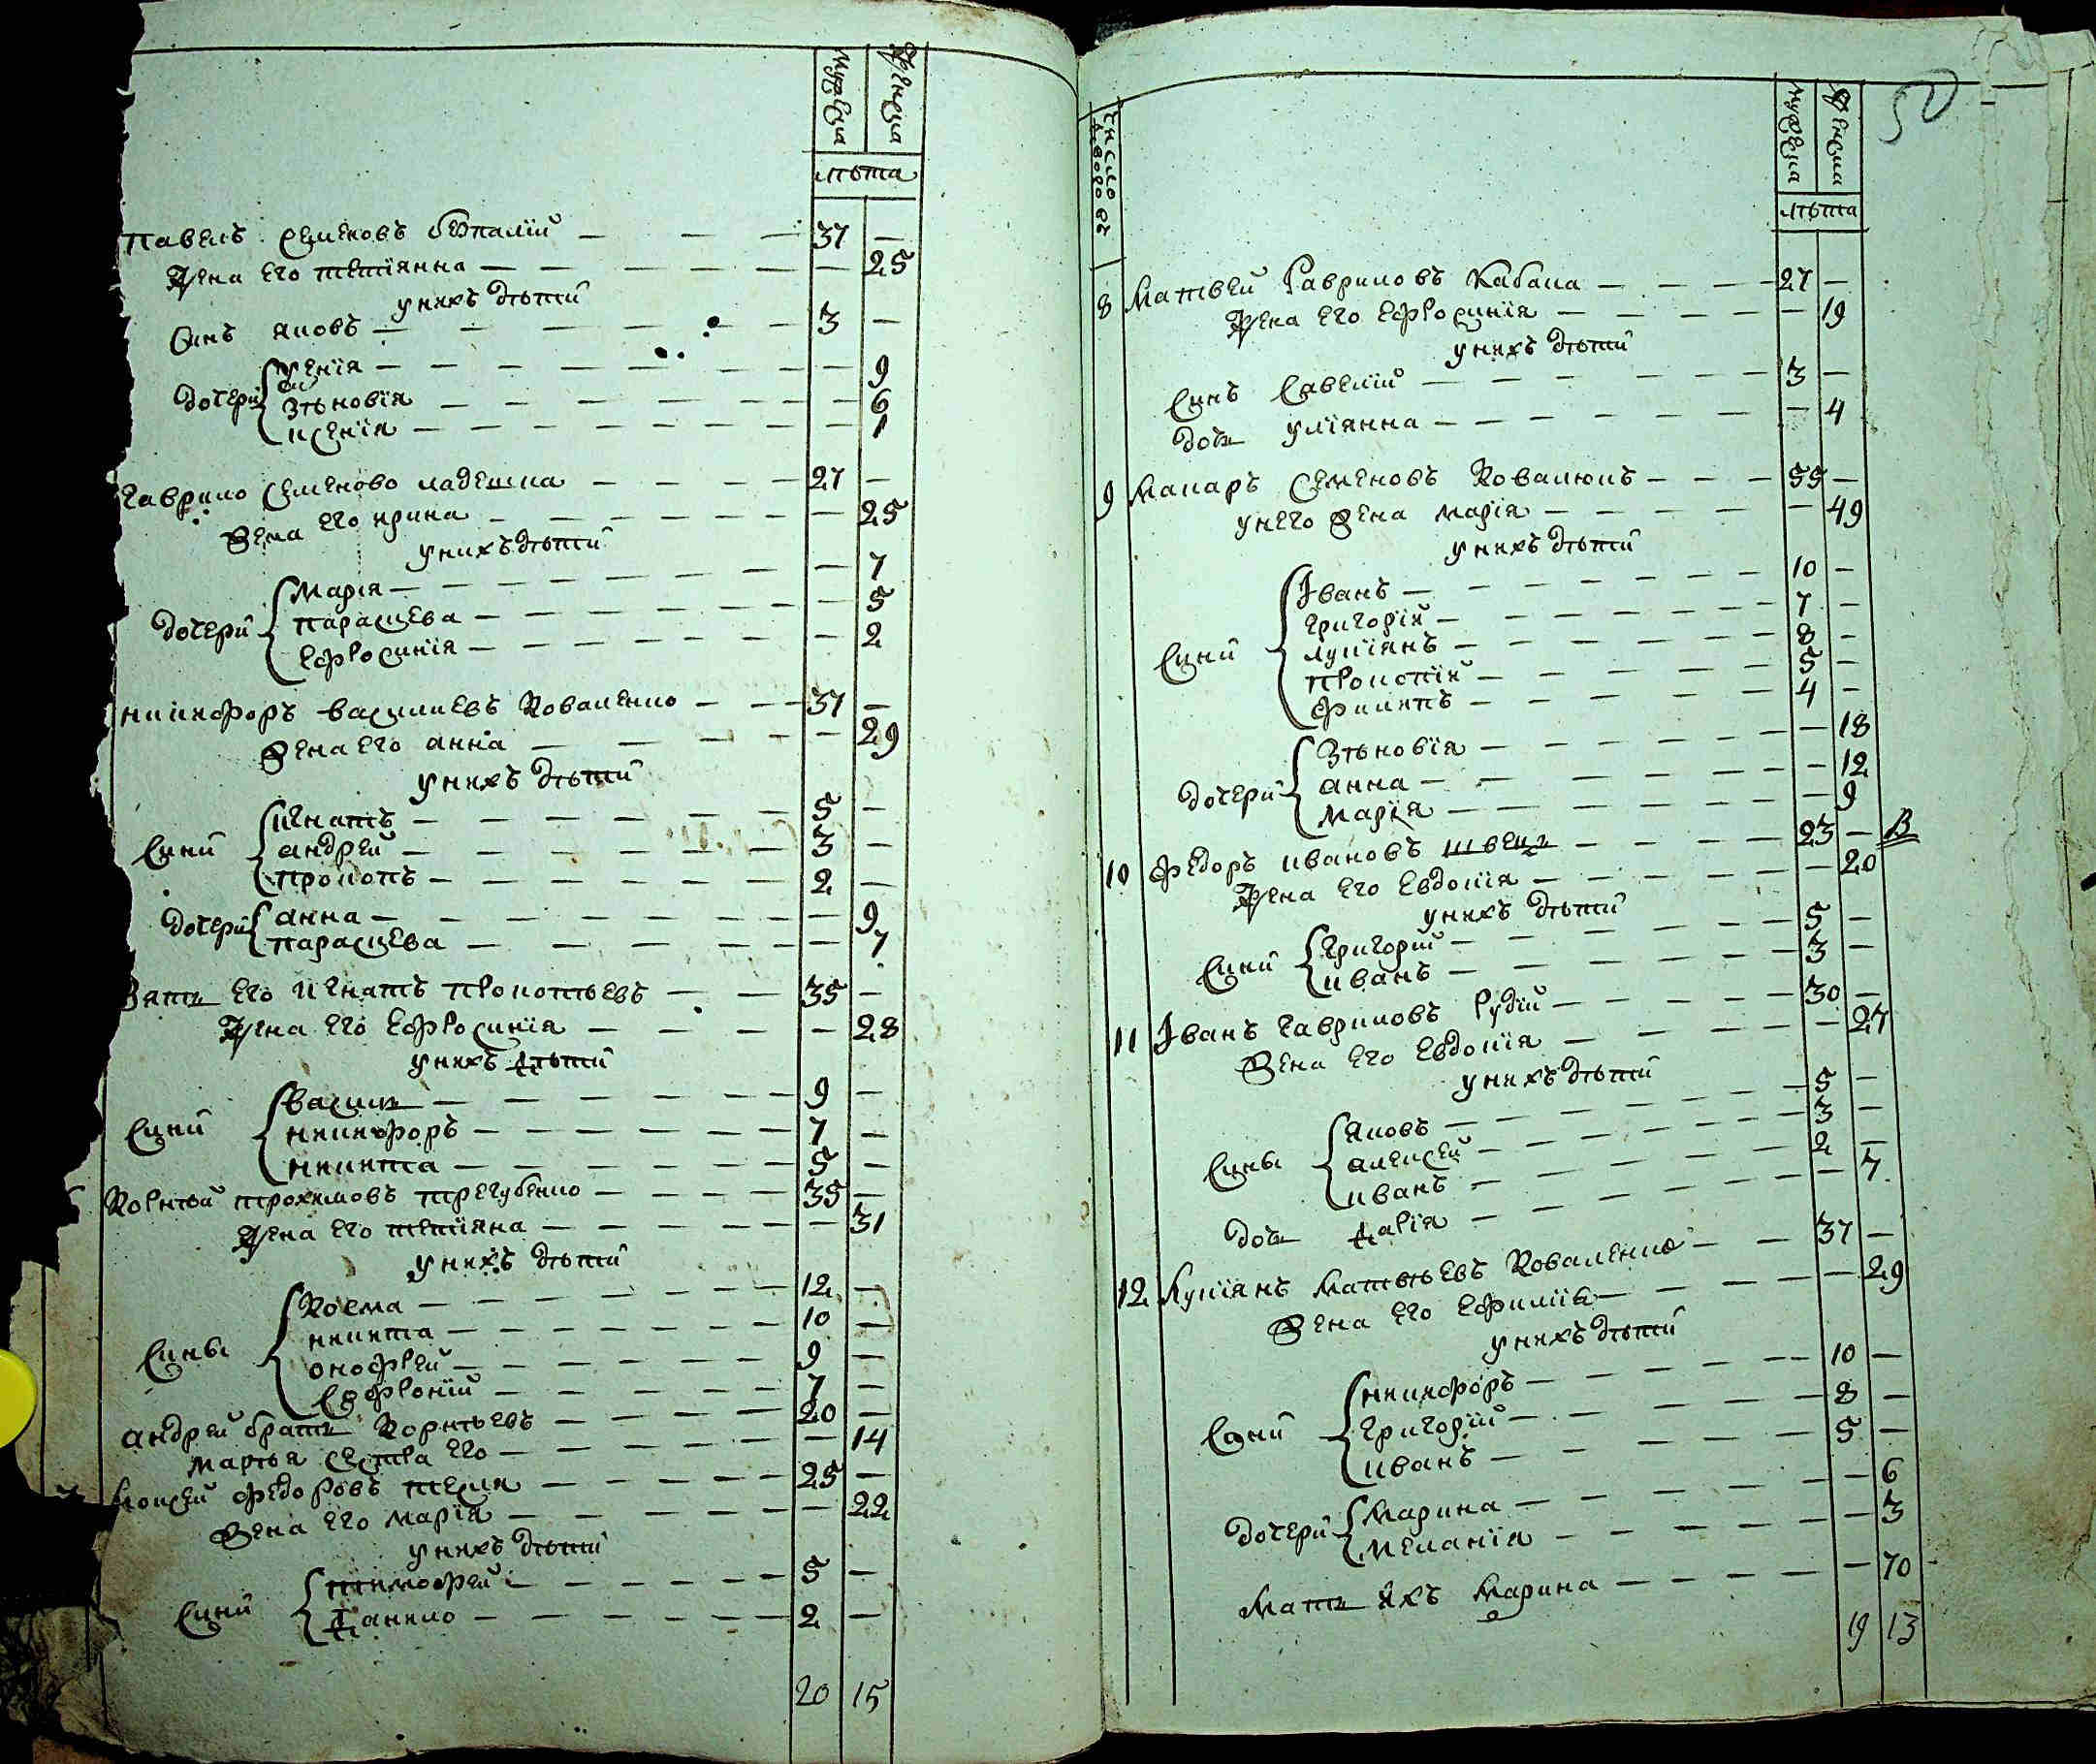 мужеска
женска
лѣта
павелъ семеновъ 37 —
жена его тетіянна — 25
унихъ дѣтей
синъ яковъ 3 —
ксенія — 9
дочери зѣновія — 6
ксенія — 1
гаврило семеново ладешка 27 —
жена его ирина — 25
унихъ дѣтей
Марія — 7
дочери параскева — 5
ефросинія — 2
никифоръ василиевъ коваленко 37 —
жена его анна — 29
унихъ дѣтей
игнатъ 5 —
сини андрей 3 —
прокопъ 2 —
дочери анна — 9
параскева — 7
зять его игнатъ прокопьевъ 35 —
жена его ефросинія — 28
унихъ дѣтей
василь 9 —
сини никифоръ 7 —
никита 5 —
корнѣй трохимовъ трегубенко 35 —
жена его тетіяна — 31
унихъ дѣтей
козма 12 —
никита 10 —
сины онофрей 9 —
софроній 7 —
андрей братъ корнѣевъ 20 —
марѳя сестра его — 14
моисей федоровъ тесля 25 —
жена его марія — 22
унихъ дѣтей
сини тимофей 5 —
данило 2 —
20 15
50
число дворовъ
мужеска
женска
лѣта
8 Матвей Гавриловъ Кабака 27 —
жена его ефросинія — 19
унихъ дѣтей
синъ савелий 3 —
дочь уліянна — 4
9 Макаръ семеновъ ковалюкъ 55 —
унего жена марія — 49
унихъ дѣтей
Іванъ 10 —
григорій 7 —
сини лукіянъ 8 —
прокопій 5 —
филипъ 4 —
зѣновія — 18
дочери анна — 12
марія — 9
10 федоръ ивановъ швець 23 — В
жена его евдокія — 20
унихъ дѣтей
сини григорий 5 —
иванъ 3 —
11 Іванъ гавриловъ рудій 30 —
жена его евдокія — 27
унихъ дѣтей
яковъ 5 —
сины алексей 3 —
иванъ 2 —
дочь дарія — 7
12 Лукіянъ матвѣевъ коваленко 37 —
жена его ефимія — 29
унихъ дѣтей
никифоръ 10 —
сини григорій 8 —
иванъ 5 —
дочери марина — 6
меланія — 3
мать ихъ марина — 70
19 13